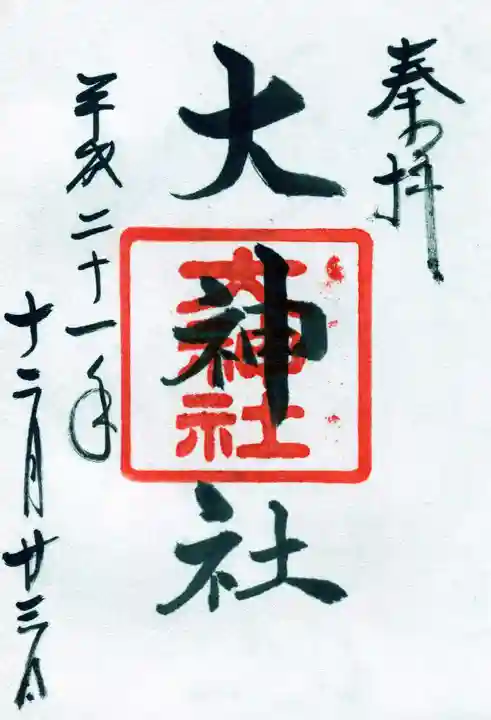 奉拝
大神社
大神社
平成二十一年
十二月廿三日